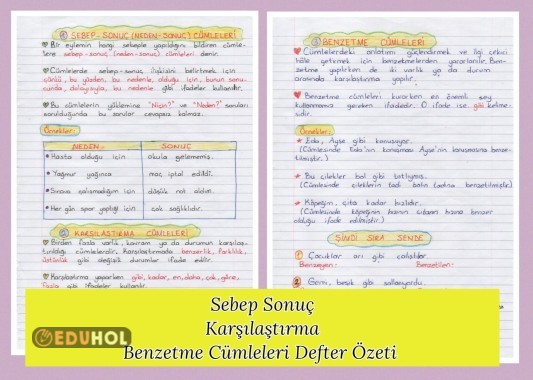 ① SEBEP-SONUÇ (NEDEN-SONUÇ) CÜMLELERİ
Bir eylemin hangi sebeple yapıldığını bildiren cümle-
lere sebep-sonuç (neden-sonuç) cümleleri denir.
Cümlelerde sebep-sonuç ilişkisini belirtmek için
çünkü, bu yüzden, bu nedenle, olduğu için, bunun sonu-
cunda, dolayısıyla, bu nedenle gibi ifadeler kullanılır.
Bu cümlelerin yüklemine "Niçin?" ve "Neden?" soruları
sorulduğunda bu sorular cevapsız kalmaz.
Örnekler:
NEDEN SONUÇ
Hasta olduğu için okula gelememiş.
Yağmur yağınca maç iptal edildi.
Sınava çalışmadığım için düşük not aldım.
Her gün spor yaptığı için çok sağlıklıdır.
② KARŞILAŞTIRMA CÜMLELERİ
Birden fazla varlık, kavram ya da durumun karşılaş-
tırıldığı cümlelerdir. Karşılaştırmada benzerlik, farklılık,
üstünlük gibi değişik durumlar ifade edilir.
Karşılaştırma yaparken gibi, kadar, en, daha, çok, göre,
fazla gibi ifadeler kullanılır.
③ BENZETME CÜMLELERİ
Cümlelerdeki anlatımı güçlendirmek ve ilgi çekici
hâle getirmek için benzetmelerden yararlanılır. Ben-
zetme yapılırken de iki varlık ya da durum
arasında karşılaştırma yapılır.
Benzetme cümleleri kurarken en önemli şey
kullanmamız gereken ifadedir. O ifade ise gibi kelime-
sidir.
Örnekler:
Eda, Ayşe gibi konuşuyor.
(Cümlesinde Eda'nın konuşması Ayşe'nin konuşmasına benze-
tilmiştir.)
Bu çilekler bal gibi tatlıymış.
(Cümlesinde çileklerin tadı balın tadına benzetilmiştir.)
Köpeğim, çita kadar hızlıdır.
(Cümlesinde köpeğinin hızının çitanın hızına benzer
olduğu ifade edilmiştir.)
ŞİMDİ SIRA SENDE
1 Çocuklar arı gibi çalıştılar.
Benzeyen: Benzetilen:
2 Gemi, beşik gibi sallanıyordu.
EDUHOL
Sebep Sonuç
Karşılaştırma
Benzetme Cümleleri Defter Özeti